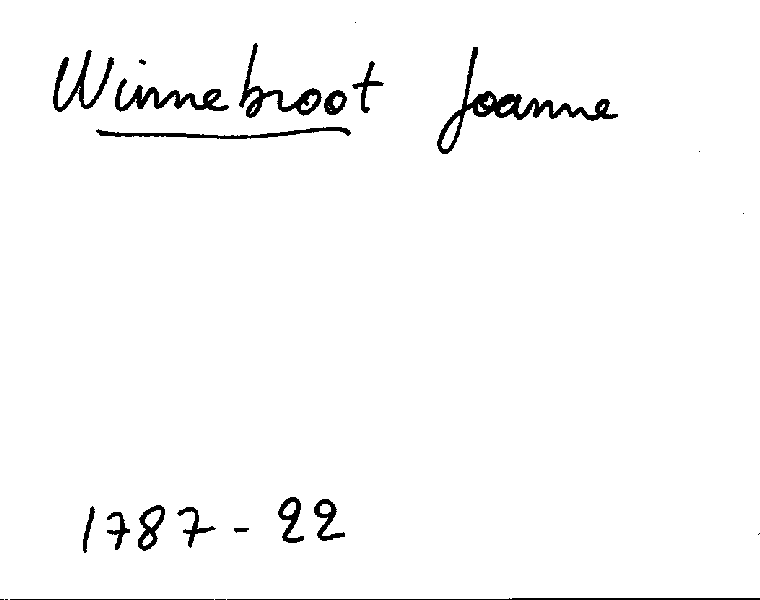 Winnebroot Joanne
1787 - 22